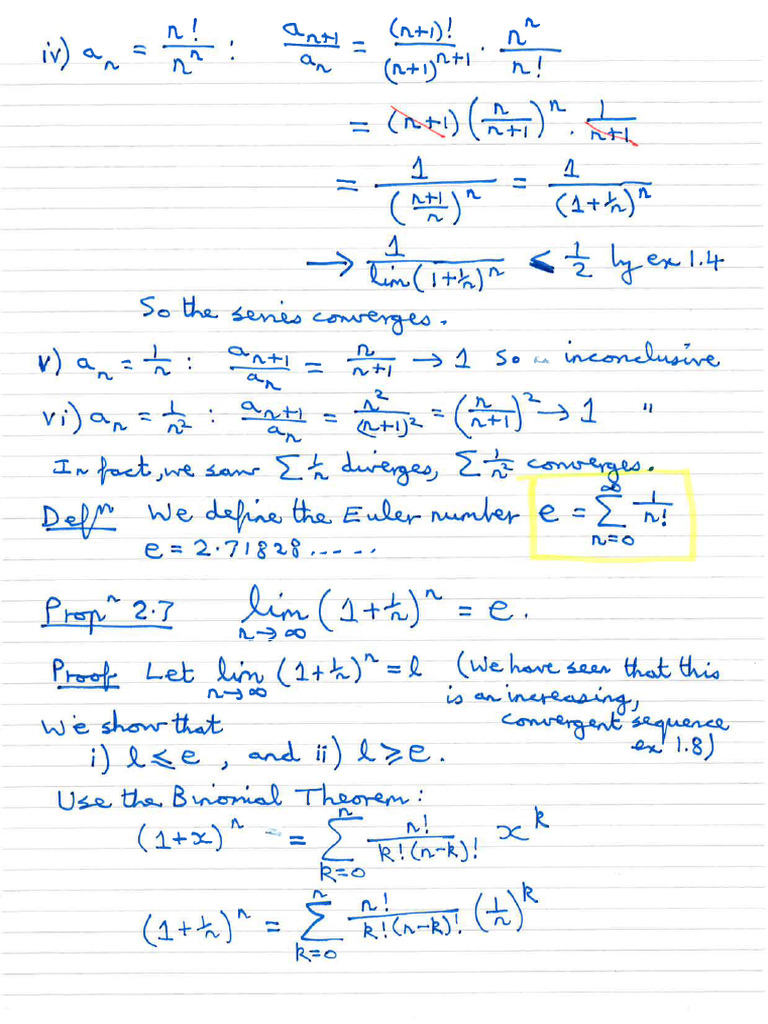 iv) aₙ = n!/nⁿ : aₙ₊₁/aₙ = (n+1)!/(n+1)ⁿ⁺¹ · nⁿ/n!
= (n+1) (n/(n+1))ⁿ · 1/(n+1)
= 1/((n+1)/n)ⁿ = 1/(1+1/n)ⁿ
→ 1/lim(1+1/n)ⁿ < 1/2 by ex 1.4
So the series converges.
v) aₙ = 1/n : aₙ₊₁/aₙ = n/(n+1) → 1 so inconclusive
vi) aₙ = 1/n² : aₙ₊₁/aₙ = n²/(n+1)² = (n/(n+1))² → 1 "
In fact, we saw Σ 1/n diverges, Σ 1/n² converges.
Defⁿ We define the Euler number e = Σ_{n=0}^{∞} 1/n!
e = 2.71828.....
Propⁿ 2.7 lim_{n→∞} (1+1/n)ⁿ = e.
Proof Let lim_{n→∞} (1+1/n)ⁿ = l (We have seen that this
is an increasing,
convergent sequence
ex 1.8)
We show that
i) l ≤ e , and ii) l ≥ e.
Use the Binomial Theorem:
(1+x)ⁿ = Σ_{k=0}^{n} n!/(k!(n-k)!) xᵏ
(1+1/n)ⁿ = Σ_{k=0}^{n} n!/(k!(n-k)!) (1/n)ᵏ